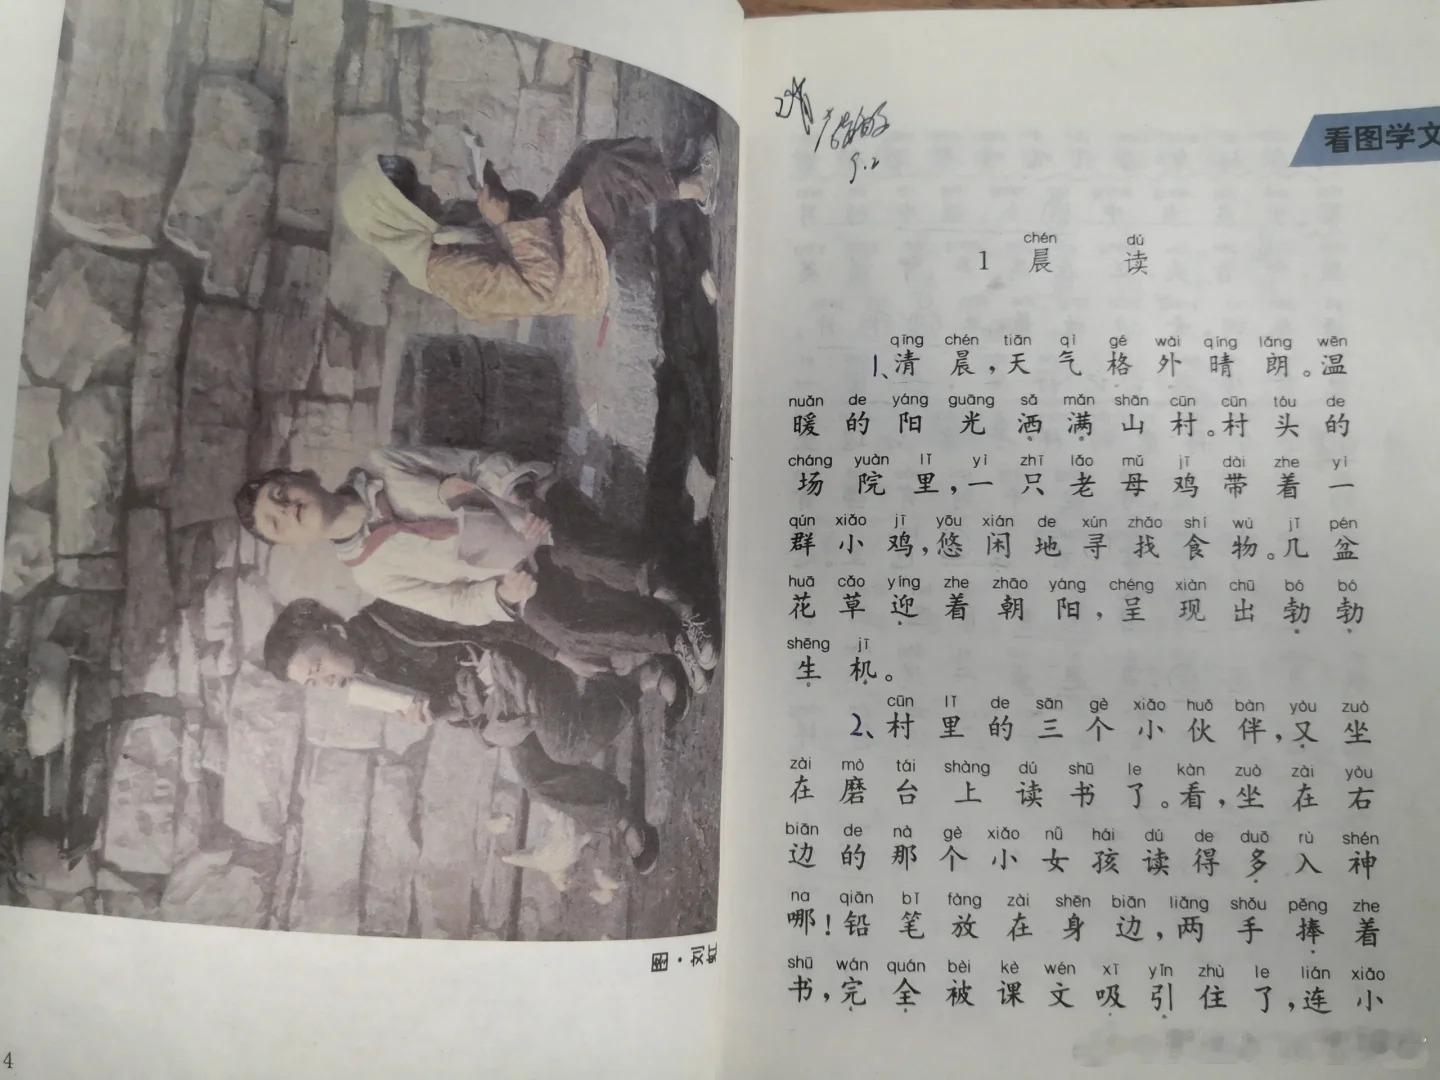 看图学文
chén dú
1 晨 读
qīng chén tiān qì gé wài qíng lǎng wēn
1、清晨,天气格外晴朗。温
nuǎn de yáng guāng sǎ mǎn shān cūn cūn tóu de
暖的阳光洒满山村。村头的
cháng yuàn lǐ yì zhī lǎo mǔ jī dài zhe yì
场院里,一只老母鸡带着一
qún xiǎo jī yōu xián de xún zhǎo shí wù jǐ pén
群小鸡,悠闲地寻找食物。几盆
huā cǎo yíng zhe zhāo yáng chéng xiàn chū bó bó
花草迎着朝阳,呈现出勃勃
shēng jī
生机。
cūn lǐ de sān gè xiǎo huǒ bàn yòu zuò
2、村里的三个小伙伴,又坐
zài mò tái shàng dú shū le kàn zuò zài yòu
在磨台上读书了。看,坐在右
biān de nà gè xiǎo nǚ hái dú de duō rù shén
边的那个小女孩读得多入神
na qiān bǐ fàng zài shēn biān liǎng shǒu pěng zhe
哪!铅笔放在身边,两手捧着
shū wán quán bèi kè wén xī yǐn zhù le lián xiǎo
书,完全被课文吸引住了,连小
9.2
图·刘虹
4